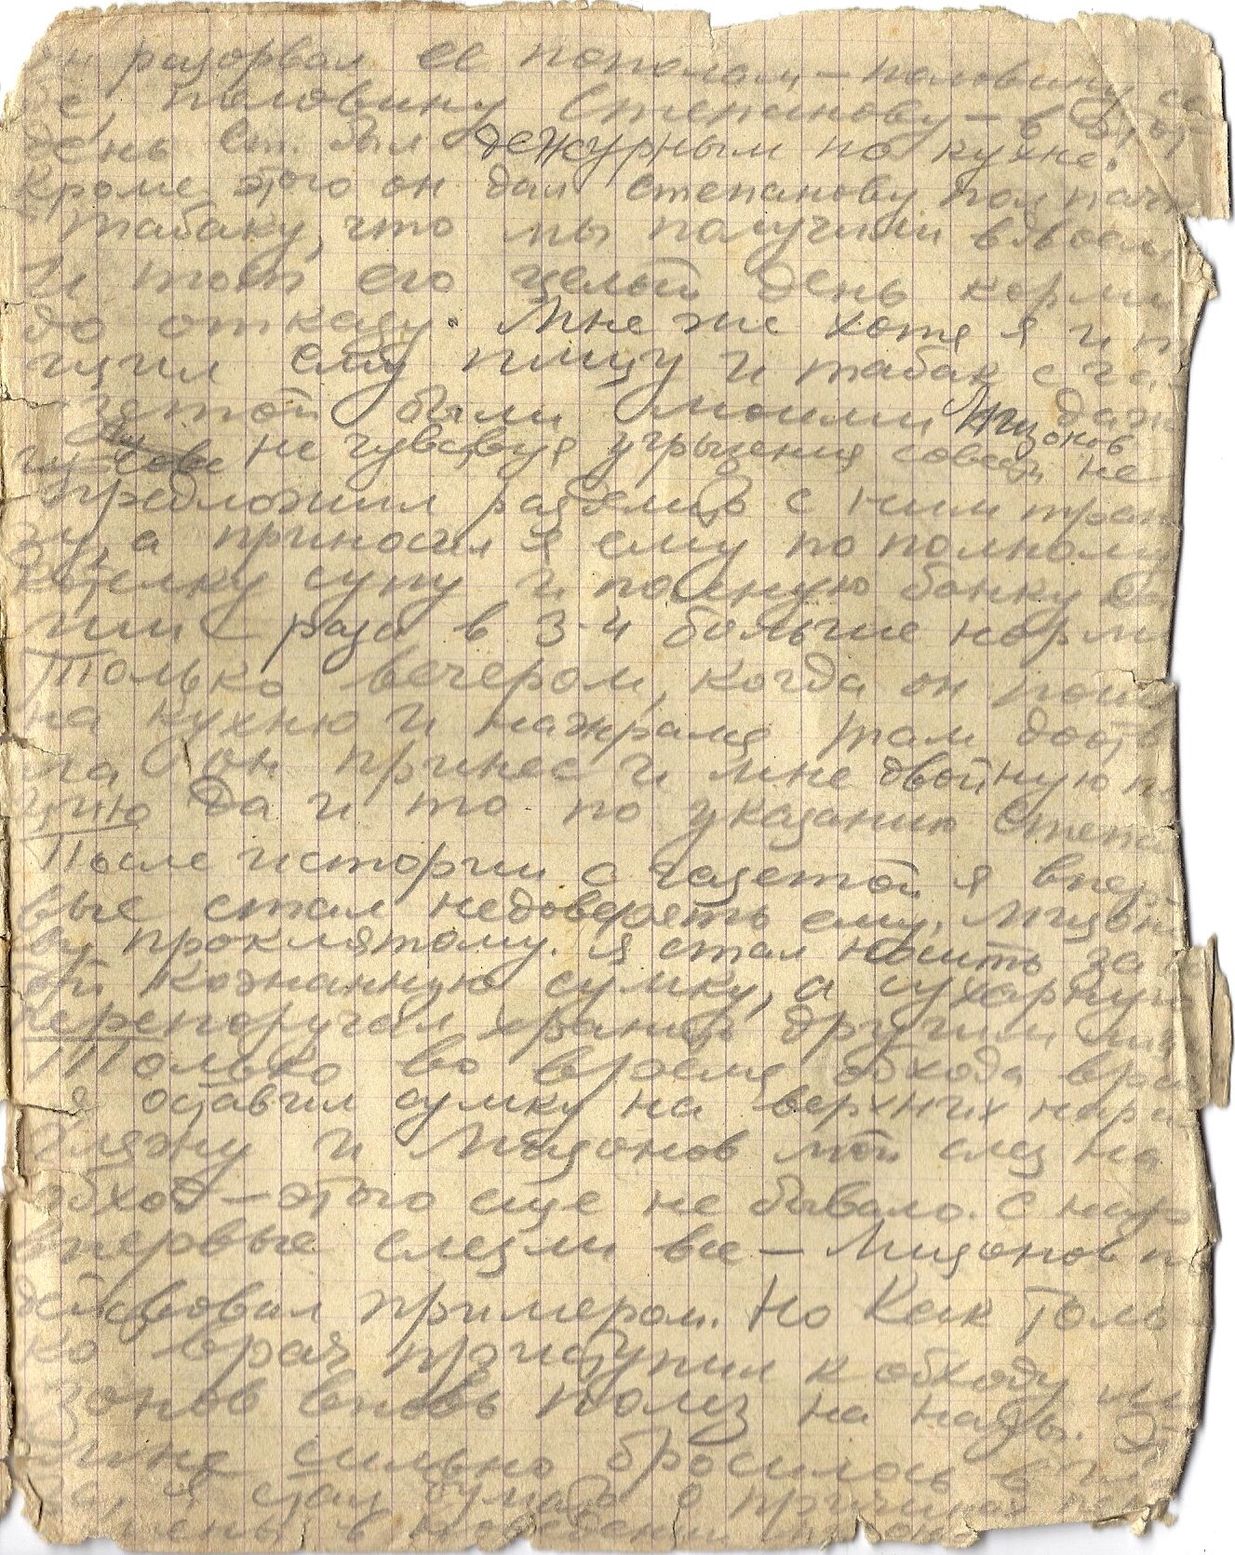 он разорвал ее пополам – половину се
бе, половину Степанову – в этот
день Ст. был дежурным по кухне.
Кроме этого он дал степанову пол пач
табаку, что мы получили вдвоем
И тот его целый день корми
до отказу. Мне же хотя я и п
ему пищу и табак с га
зетой были моими Мизонов даж
не чувствуя угрызения совести не
предложил разделить с ним трап
зу, а приносил я ему по полному
котелку супу и полную банку
раза в 3-4 больше нормы
Только вечером, когда он пош
на кухню и нажрался там
он принес и мне двойную п
цию да и то по указанию Степа
После истории с газетой я впер
вые стал недоверять ему, Мизоно
ву проклятому. Я стал носить за
кожанную сумку, а сухарную
перепоручал хранить другим
Только во время обхода врач
я оставил сумку на верхних нара
Гляжу и Мизонов мой слез на
обход – этого еще не бывало. С нар
впервые слезли все – Мизонов п
действовал примером. Но как толь
ко врач приступил к обходу Ми
зонов вновь полез на нары. Эт
мне сильно бросилось в гл
за, и я стал думать о причиной пере
мены в поведении